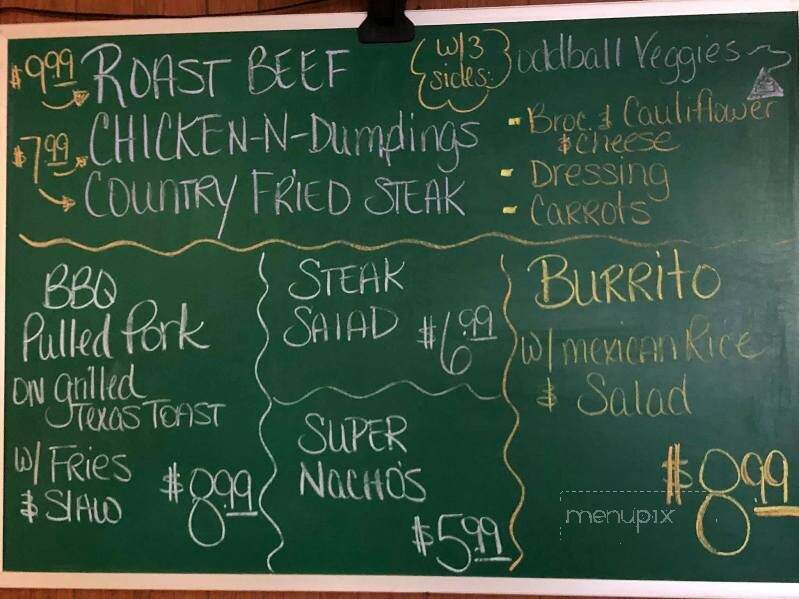 $9.99 ROAST BEEF
w/3
sides:
$7.99 CHICKEN-N-Dumplings
COUNTRY FRIED STEAK
oddball Veggies
- Broc. & Cauliflower
& cheese
- Dressing
- CARROTS
BBQ
Pulled Pork
ON grilled
TEXAS TOAST
w/ FRIES
& SlAW
$8.99
STEAK
SAlAD $6.99
SUPER
NACHO'S
$5.99
BURRITO
w/ mexican Rice
& Salad
$8.99
menupix